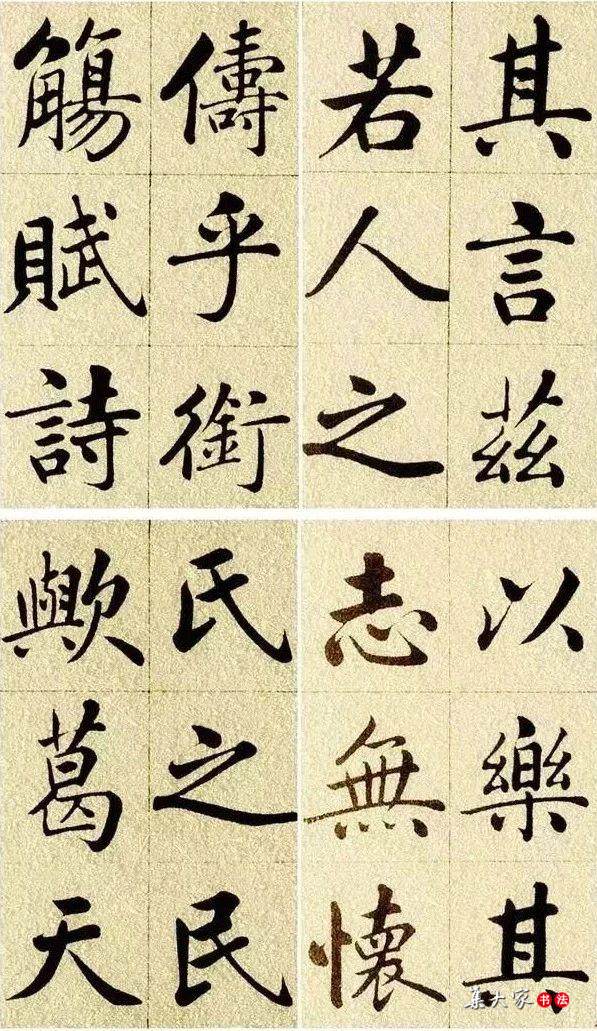 其言茲
若人之
儔乎銜
觴賦詩
以樂其
志無懷
氏之民
歟葛天
集大家书法